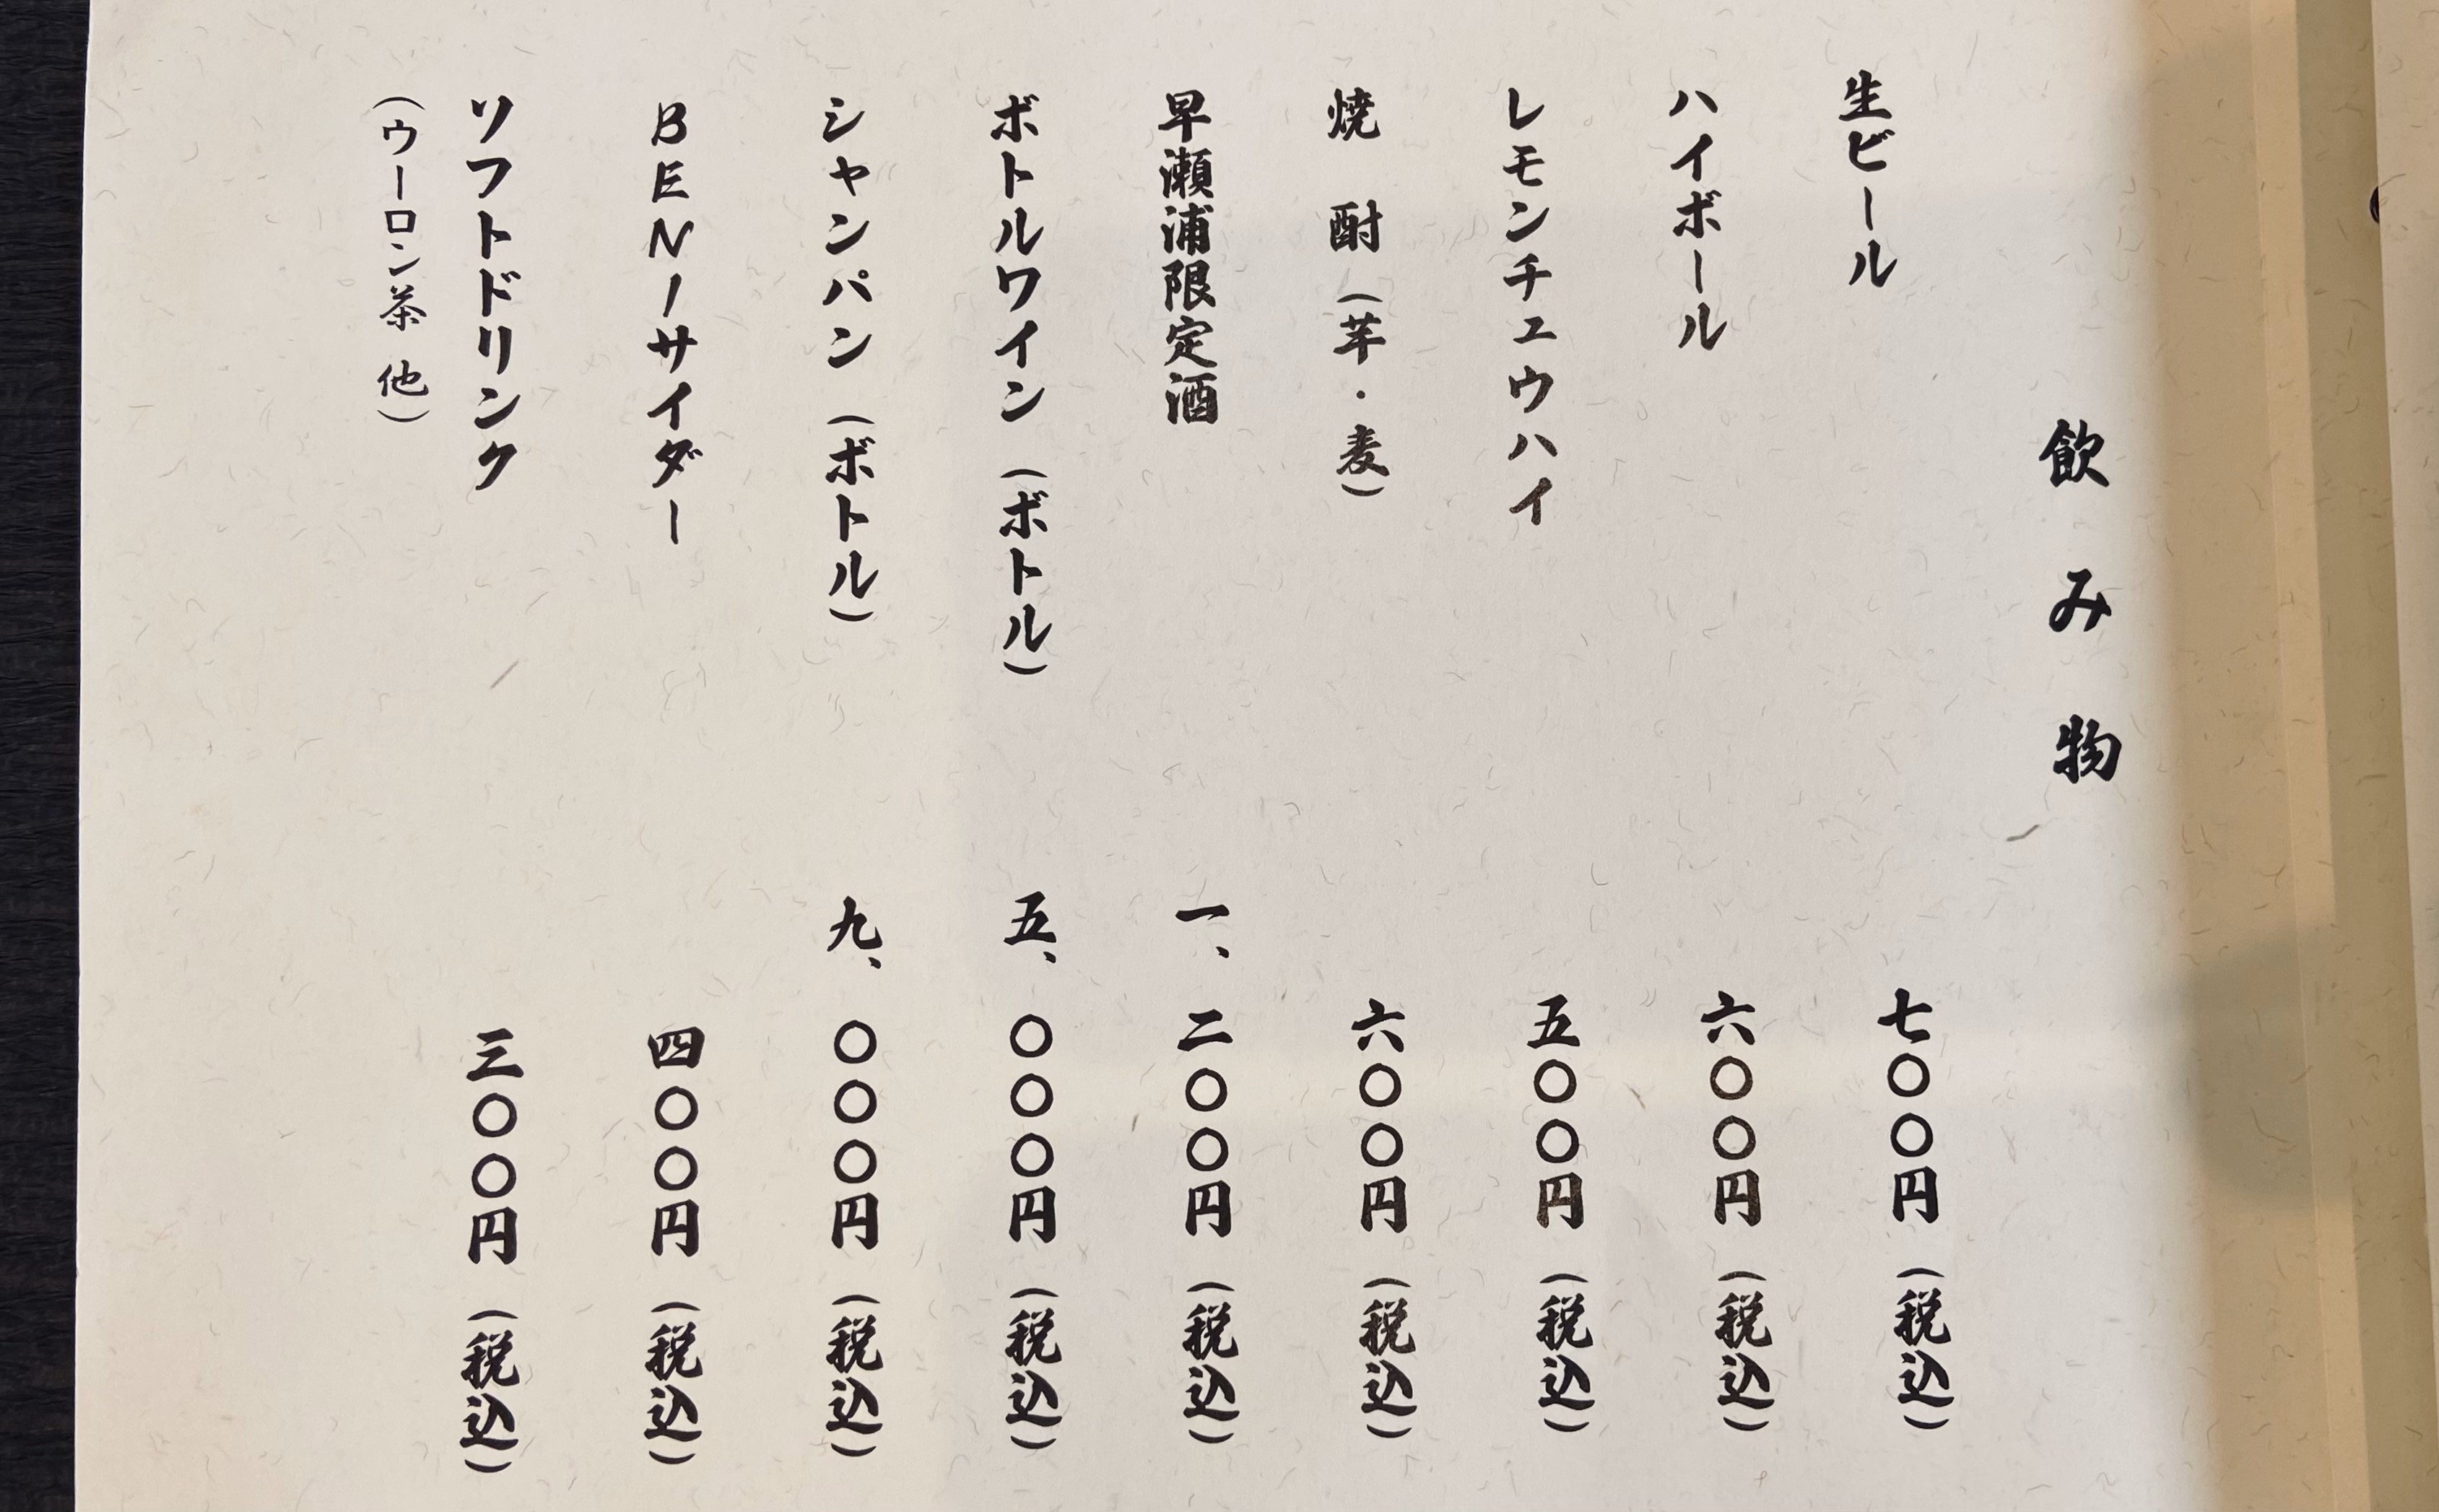 飲み物
生ビール 七〇〇円（税込）
ハイボール 六〇〇円（税込）
レモンチュウハイ 五〇〇円（税込）
焼 酎（芋・麦） 六〇〇円（税込）
早瀬浦限定酒 一、二〇〇円（税込）
ボトルワイン（ボトル） 五、〇〇〇円（税込）
シャンパン（ボトル） 九、〇〇〇円（税込）
BENIサイダー 四〇〇円（税込）
ソフトドリンク 三〇〇円（税込）
（ウーロン茶 他）